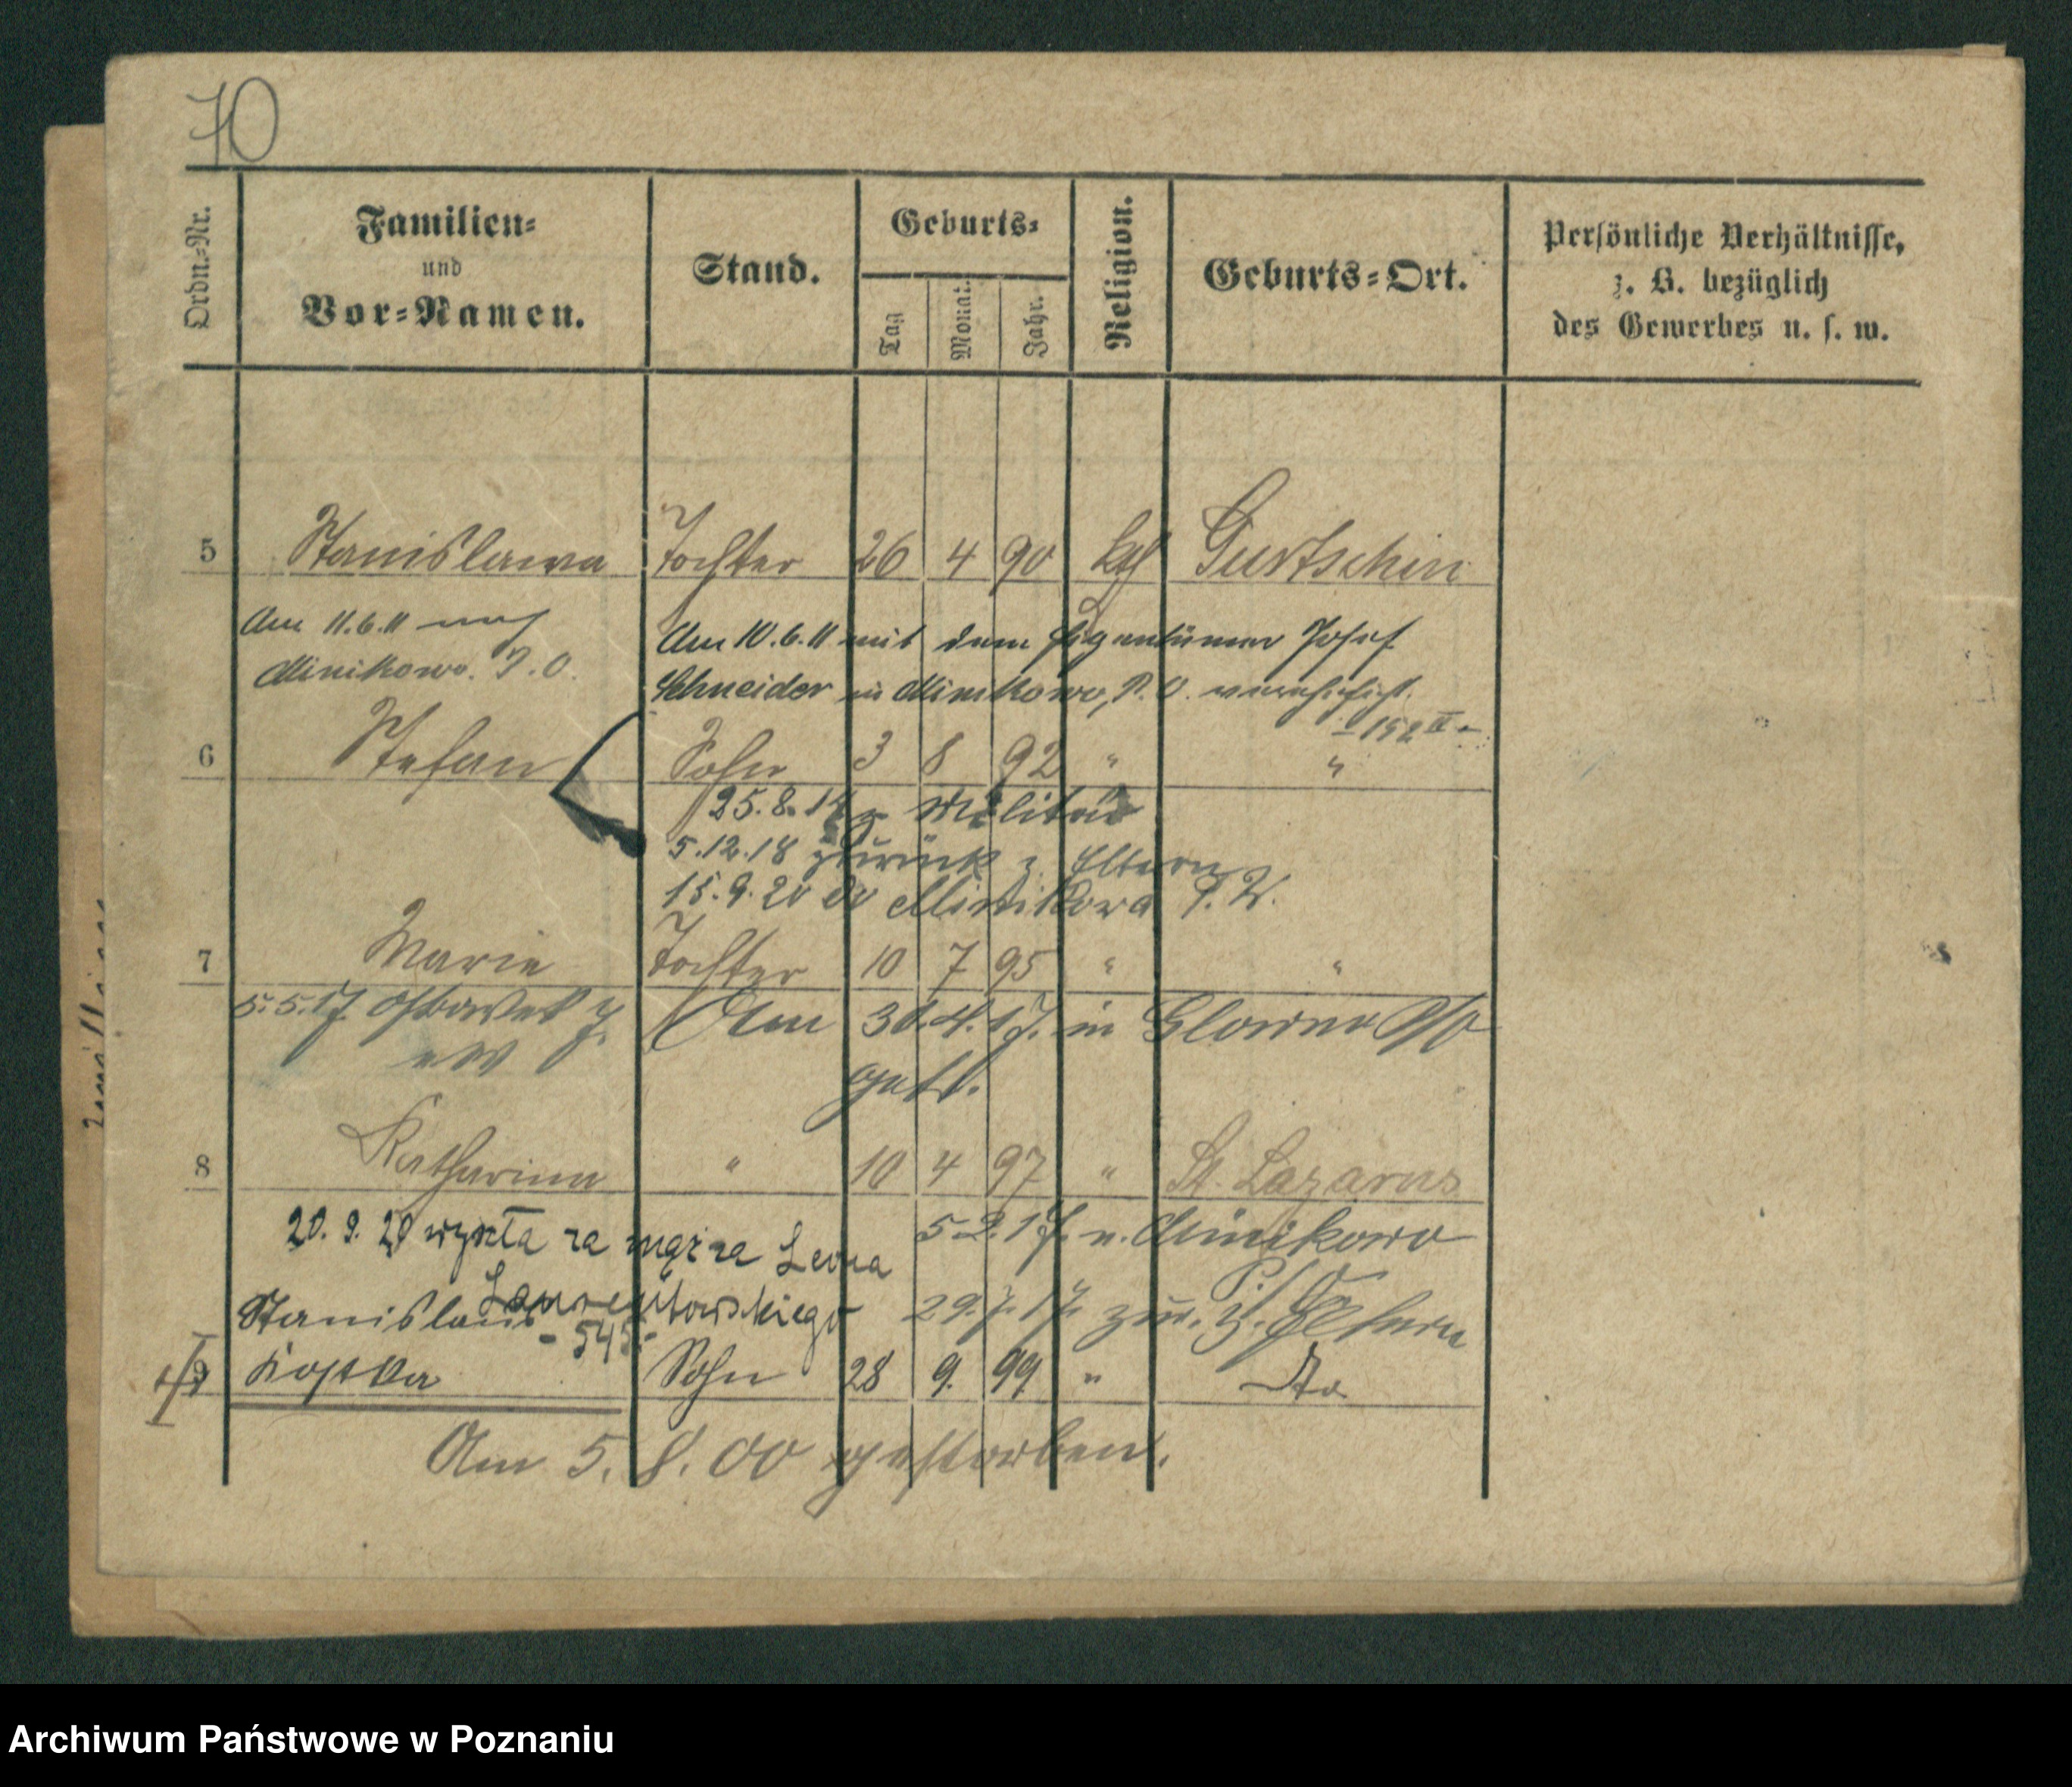 70
Ordn.=Nr.
Familien=
und
Vor=Namen.
Stand.
Geburts=
Tag
Monat.
Jahr.
Religion.
Geburts=Ort.
Persönliche Verhältnisse,
z. B. bezüglich
des Gewerbes u. s. w.
5 Stanislawa Tochter 26 4 90 kath Gurtschin
Am 11.6.11 nach
Minikowo. P. O.
Am 10.6.11 mit dem Eigentümer Josef
Schneider in Minikowo, P. O. verehelicht.
6 Stefan Sohn 3 8 92 " "
25.8.14 z Militär
5.12.18 zurück z. Eltern
15.9.20 do Minikowa P. W.
7 Marie Tochter 10 7 95 " "
5.5.17
Am 30.4.17. in Glowno
geb.
8 Katharina " 10 4 97 " St. Lazarus
20. 9. 20 wyszła za mąż za Leona
5.2.17. n. Minikowo
P. O.
Lawrentowskiego
- 545 -
29.7.17 zur. z. Eltern
Stanislaus
9 Kostka Sohn 28 9. 99 " Do
Am 5. 8. 00 gestorben.
Archiwum Państwowe w Poznaniu